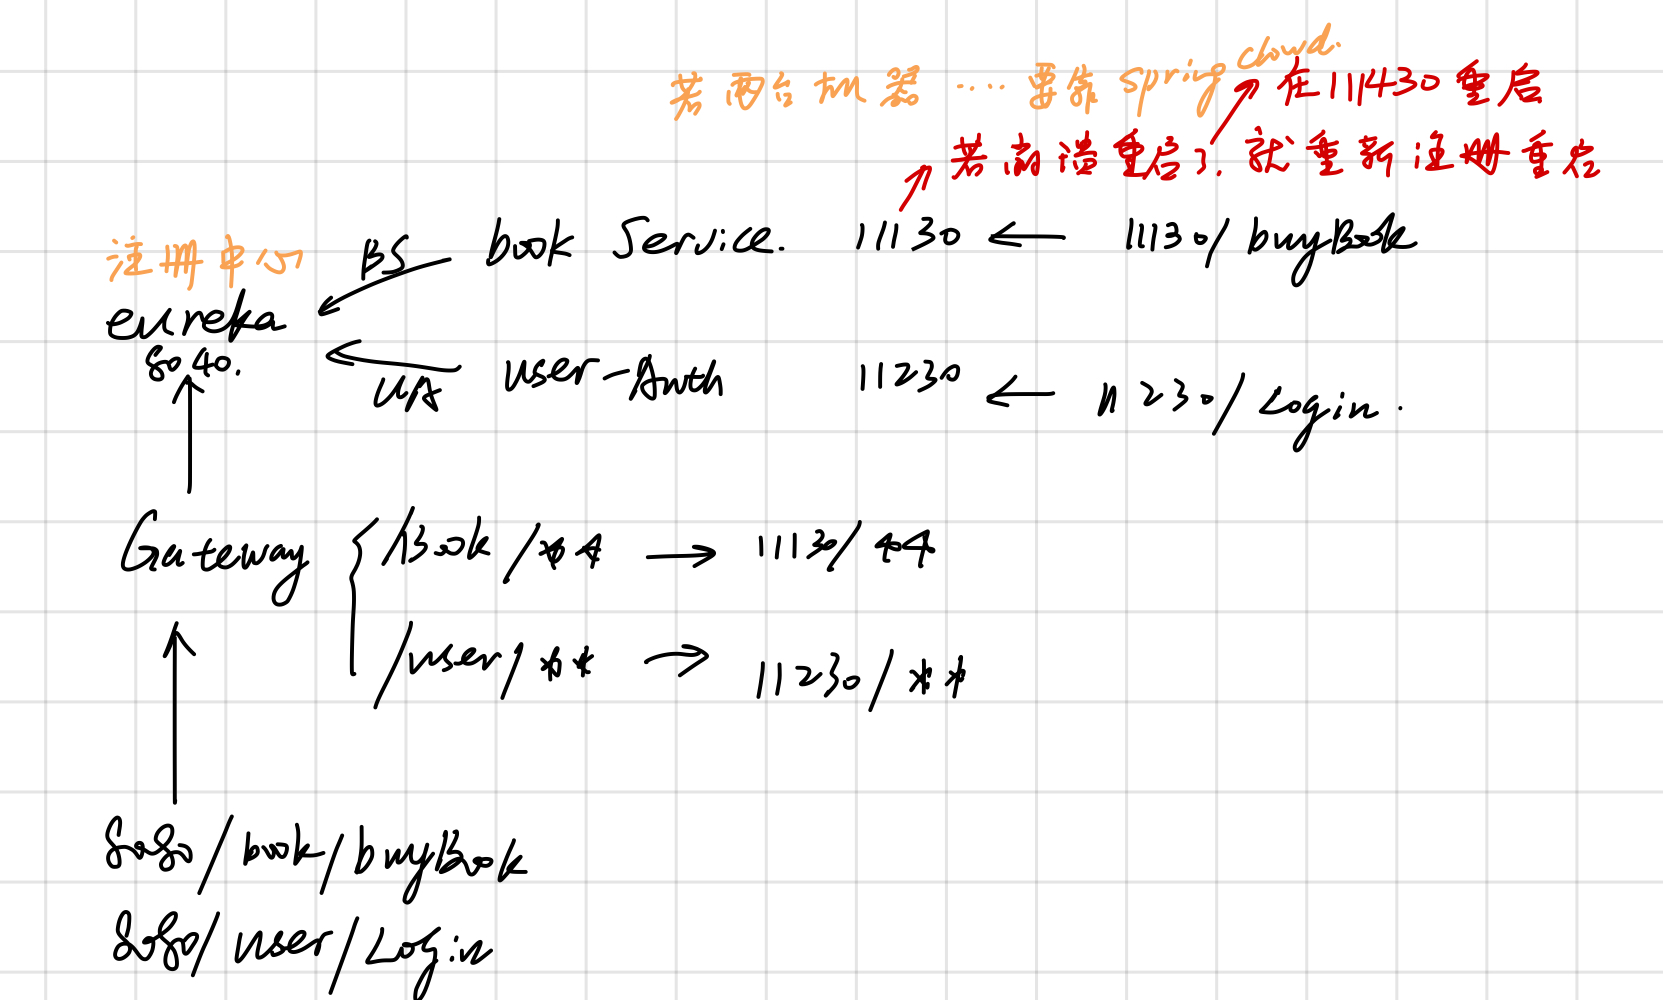 若两台机器 …… 要靠 spring cloud.
在111430重启
若崩溃重启了. 就重新注册重启
注册中心 BS book Service. 11130 ← 11130/buyBook
eureka
8040.
UA user-Auth 11230 ← 11230/Login.
Gateway { /Book/** → 11130/**
/user/** → 11230/**
8080/book/buyBook
8080/user/Login